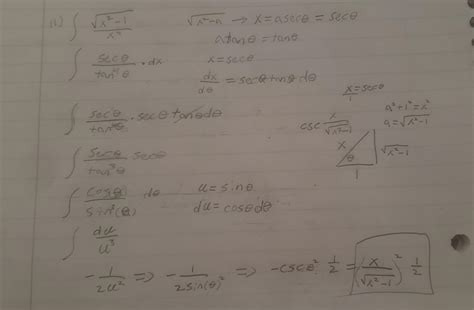 ∫ √(x²-1)/x⁴    √(x²-a) → x = a secθ = secθ
a tanθ = tanθ
∫ secθ/tan⁴θ · dx    x = secθ
dx/dθ = secθ tanθ dθ
x/1 = secθ
∫ secθ/tan⁴θ · secθ tanθ dθ    csc x/√(x²-1)    a²+1²=x²
a=√(x²-1)
x    √(x²-1)
θ
1
∫ secθ/tan³θ secθ
∫ cosθ/sin³(θ) dθ    u = sinθ
du = cosθ dθ
∫ du/u³
-1/2u² ⇒ -1/2sin(θ)² ⇒ -cscθ² 1/2 = (x/√(x²-1))² 1/2